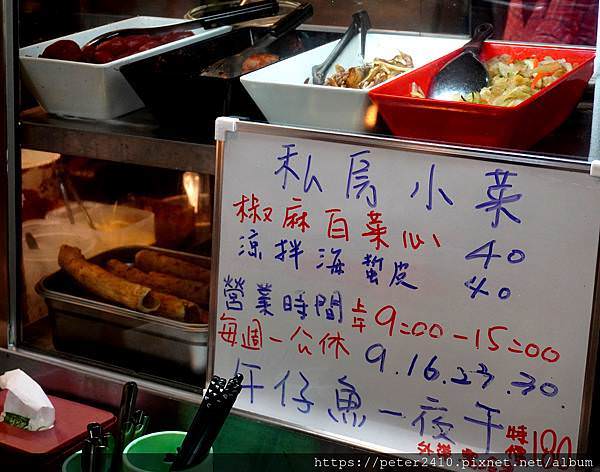 私房小菜
椒麻百菜心 40
涼拌海蜇皮 40
營業時間 上午9:00-15:00
每週一公休 9.16.23.30.
午仔魚一夜午
外帶 特價 180
http://peter2410.pixnet.net/album